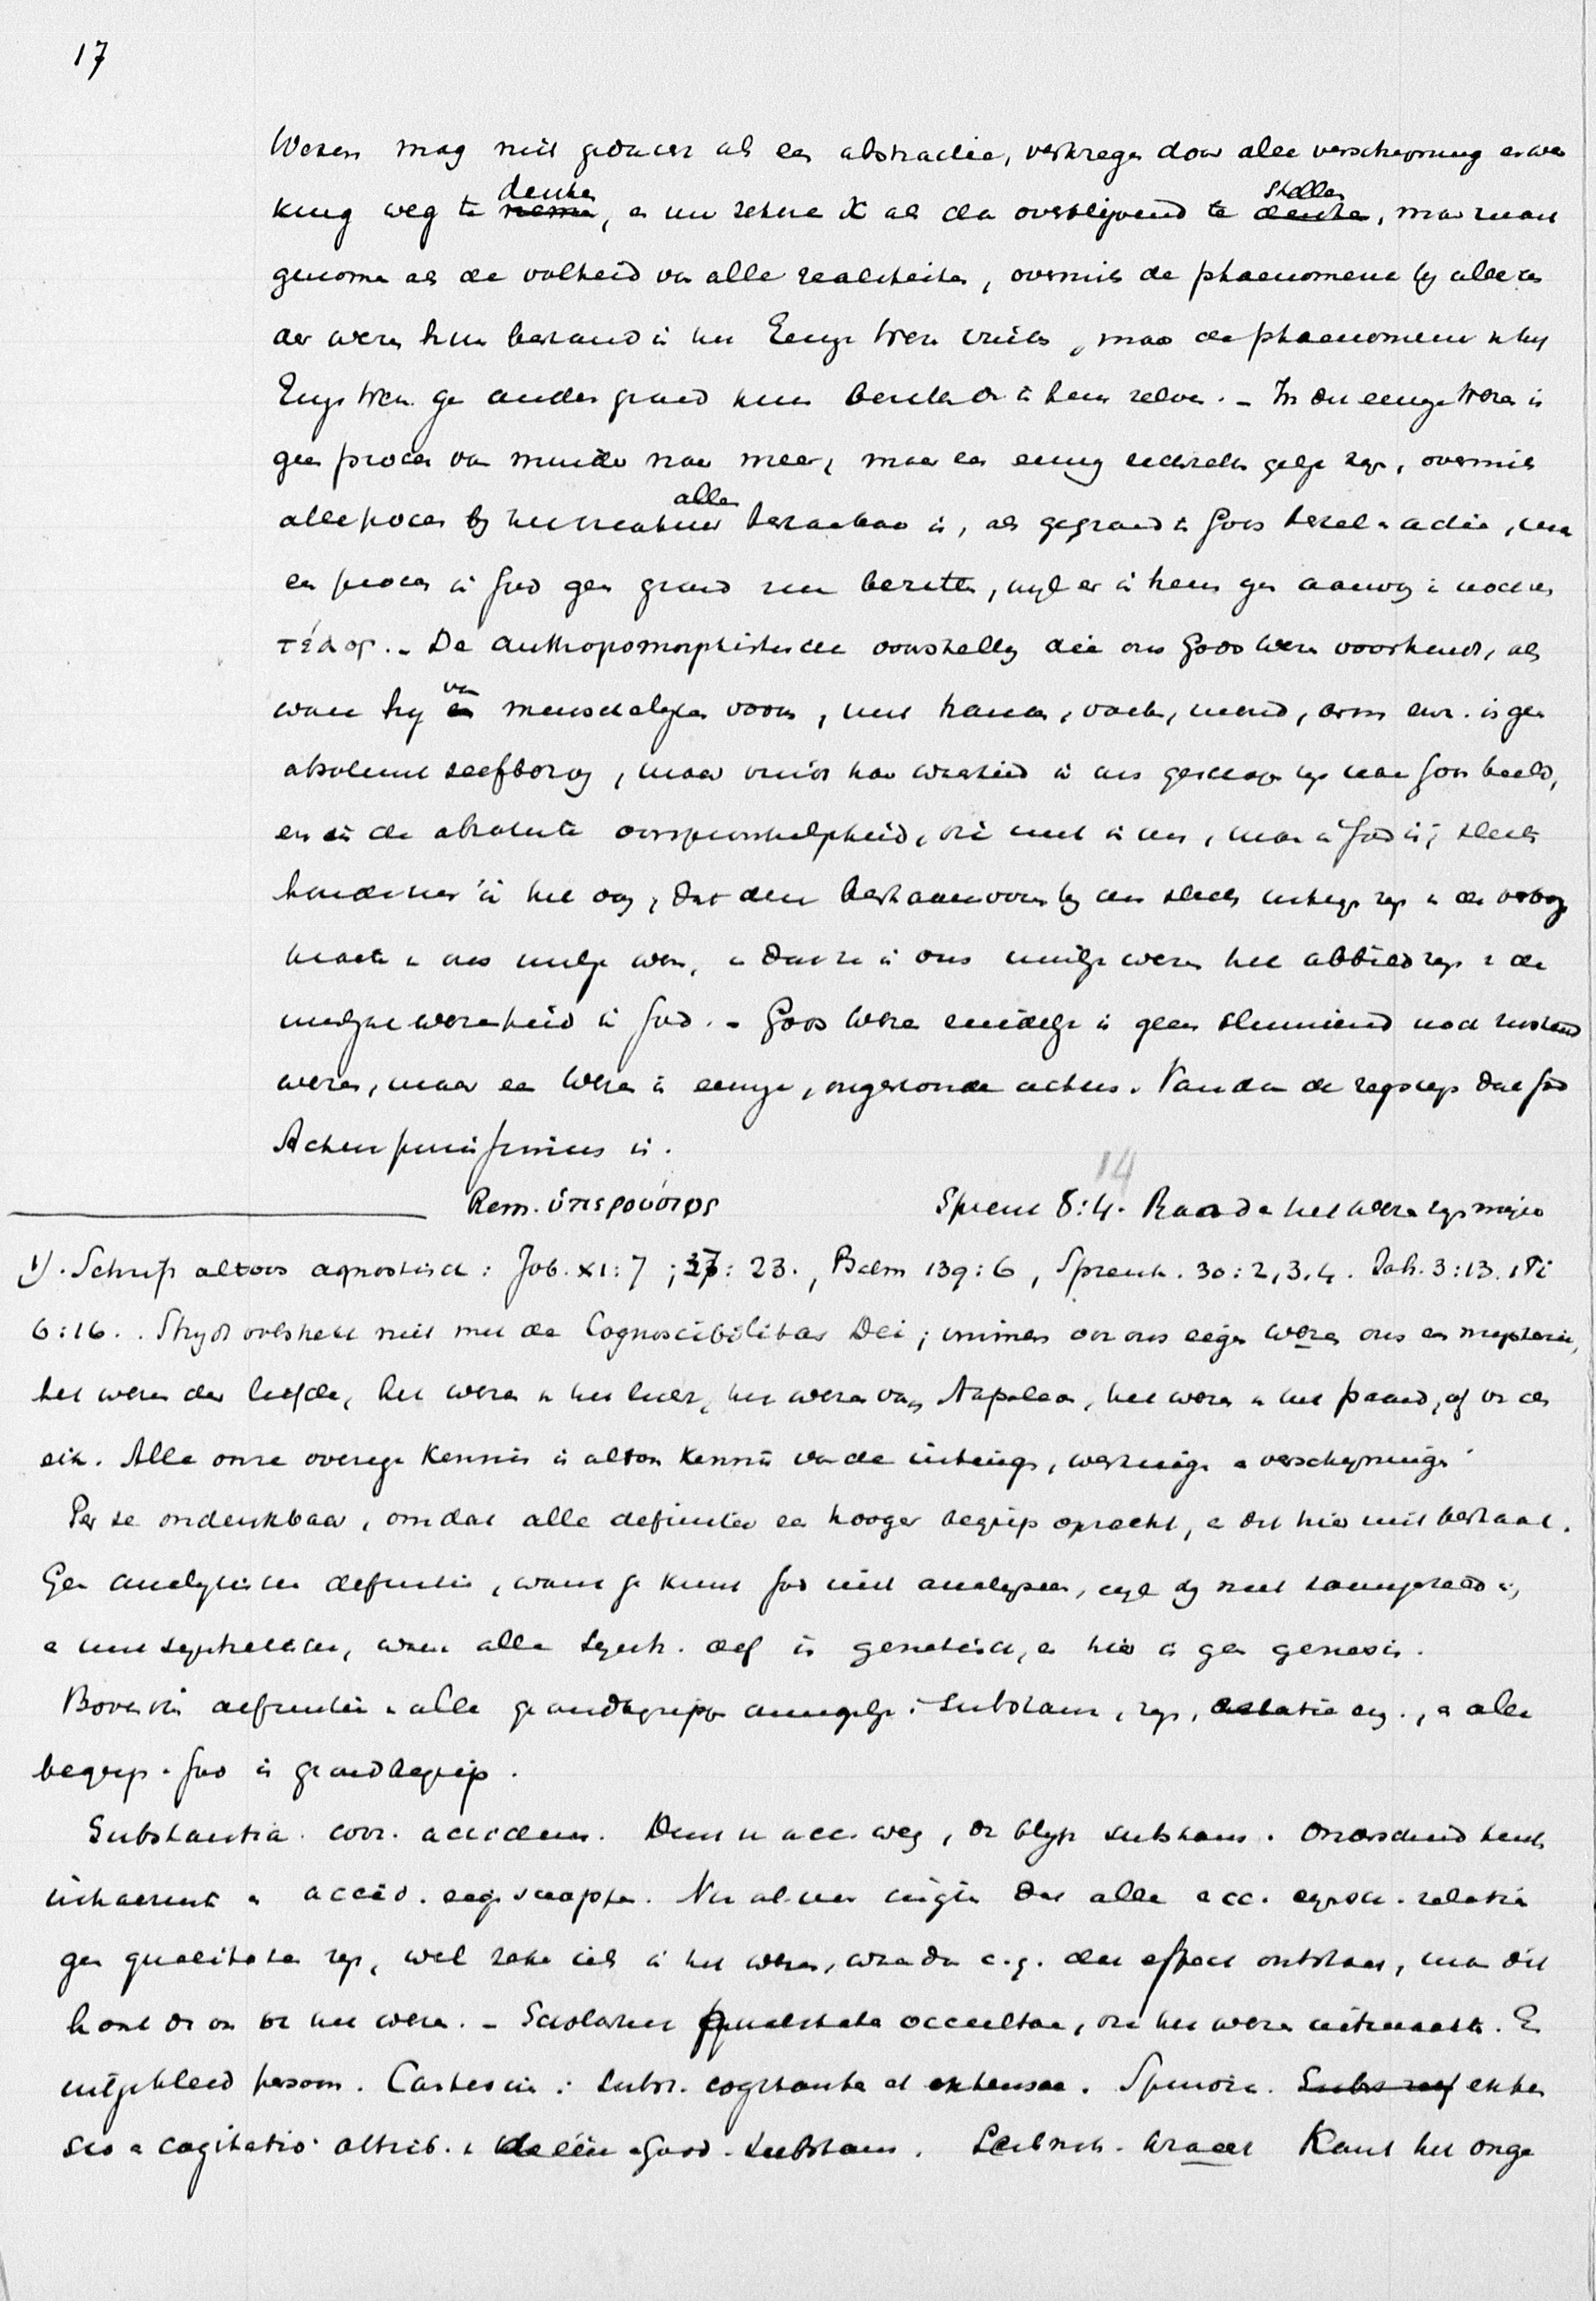 17
Wezen mag niet gedacht als een abstractie, verkregen door alle verschijning en wer
king weg te denken, en nu zekere X als dan overblijvend te stellen, maar moet
genomen als de volheid van alle realiteiten, overmits de phaenomena bij alle
der wezen hun bestand in het Eenige Wezen vinden, maar de phaenomena in het
Eenige Wezen geen anderen grond hun bereiken dan in hem zelven. - In dit eenige Wezen is
geen proces van minder naar meer, maar een eeuwig zich zelf gelijk zijn, overmits
alle proces bij het creatuur alleen bestaanbaar is, als gegrond in Gods bestel en actie, maar
een proces in God geen grond zou bezitten, wijl er in hem geen aanvang is noch een
τέλος. - De anthropomorphistische voorstelling die ons Gods wezen voorhoudt, als
ware hij van menschelijken vorm, met handen, voeten, mond, arm enz. is geen
absolute zelfborg, maar vindt haar waarheid in ons geschapen zijn naar Gods beeld,
en in de absolute oorspronkelijkheid, die niet in ons, maar in God is; slechts
houde men in het oog, dat deze bestaansvorm bij ons slechts uitingen zijn en de
krachten in ons innerlijk wezen, en dat ze in ons innerlijk wezen het afbeeld zijn van de
innerlijke wezenheid in God. - Gods Wezen eindelijk is geen sluimerend noch rustend
wezen, maar een Wezen in eeuwige, ongeschonden actus. Vandaar de zegswijs dat God
Actus purissimus is.
14
Rem. ὑπερούσιος Spreuk 8:4. Raad en het wezen zijn mijne
1). Schrift altoos agnostisch: Job. XI:7; 37:23., Psalm 139:6, Spreuk. 30:2,3,4. Joh. 3:13. 1 Ti
6:16.. Strijdt volstrekt niet met de Cognoscibilitas Dei; immers ook ons eigen wezen ons een mysterie,
het wezen der liefde, het wezen van het licht, het wezen van Napoleon, het wezen van het paard, of van den
eik. Alle onze overige Kennis is altoos Kennis van de uitingen, werkingen en verschijningen.
Per se ondenkbaar, omdat alle definitie een hooger begrip opzoekt, en dit hier niet bestaat.
Geen analytische definitie, want ge kunt God niet analyseeren, wijl hij niet samengesteld is,
en niet synthetische, want alle Synth. def is genetisch, en hier is geen genesis.
Bovendien definitie van alle grondbegrippen onmogelijk: Substans, zijn, relatie enz., en alle
begrip. God is grondbegrip.
Substantia. corr. accidens. Denk nu acc. weg, dan blijft substans. Onderscheid tusschen
inhaerente en accid. eigenschappen. Nu al meer inzien dat alle acc. eigensch. relatie
geen qualiteiten zijn, wel zeker iets in het wezen, waardoor c.q. dat effect ontstaat, maar dit
hoort dan ook bij het wezen. - Scholastiek qualitates occultae, die het wezen uitmaakten. Een
uitgekleed persoon. Cartesius: Subst. cogitantia et extensae. Spinoza. exten
sio en cogitatio attrib. van de ééne Godd. Substans. Leibnitz. kracht Kant het onge